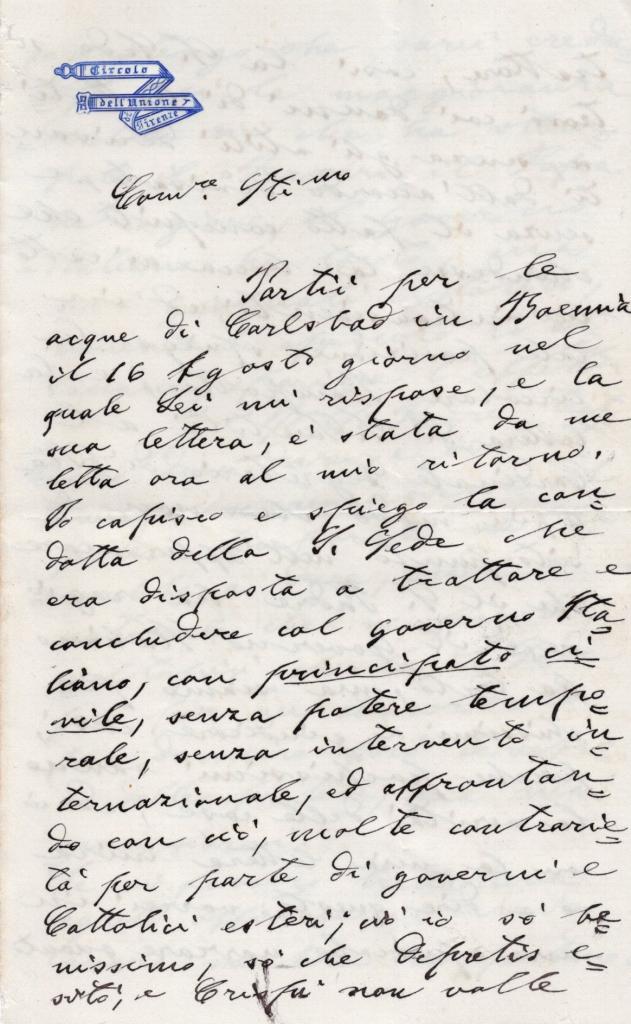 Circolo
dell'Unione
Firenze
Comre Stimo
Partii per le
acque di Carlsbad in Boemia
il 16 Agosto giorno nel
quale Lei mi rispose, e la
sua lettera, è stata da me
letta ora al mio ritorno.
Io capisco e spiego la con=
dotta della S. Sede che
era disposta a trattare e
concludere col governo Ita=
liano, con principato ci=
vile, senza potere tempo=
rale, senza intervento in=
ternazionale, ed affrontan=
do con ciò, molte contrarie=
tà per parte di governi e
Cattolici esteri; ciò io sò be=
nissimo, sò che Depretis e=
sitò, e Crispi non volle